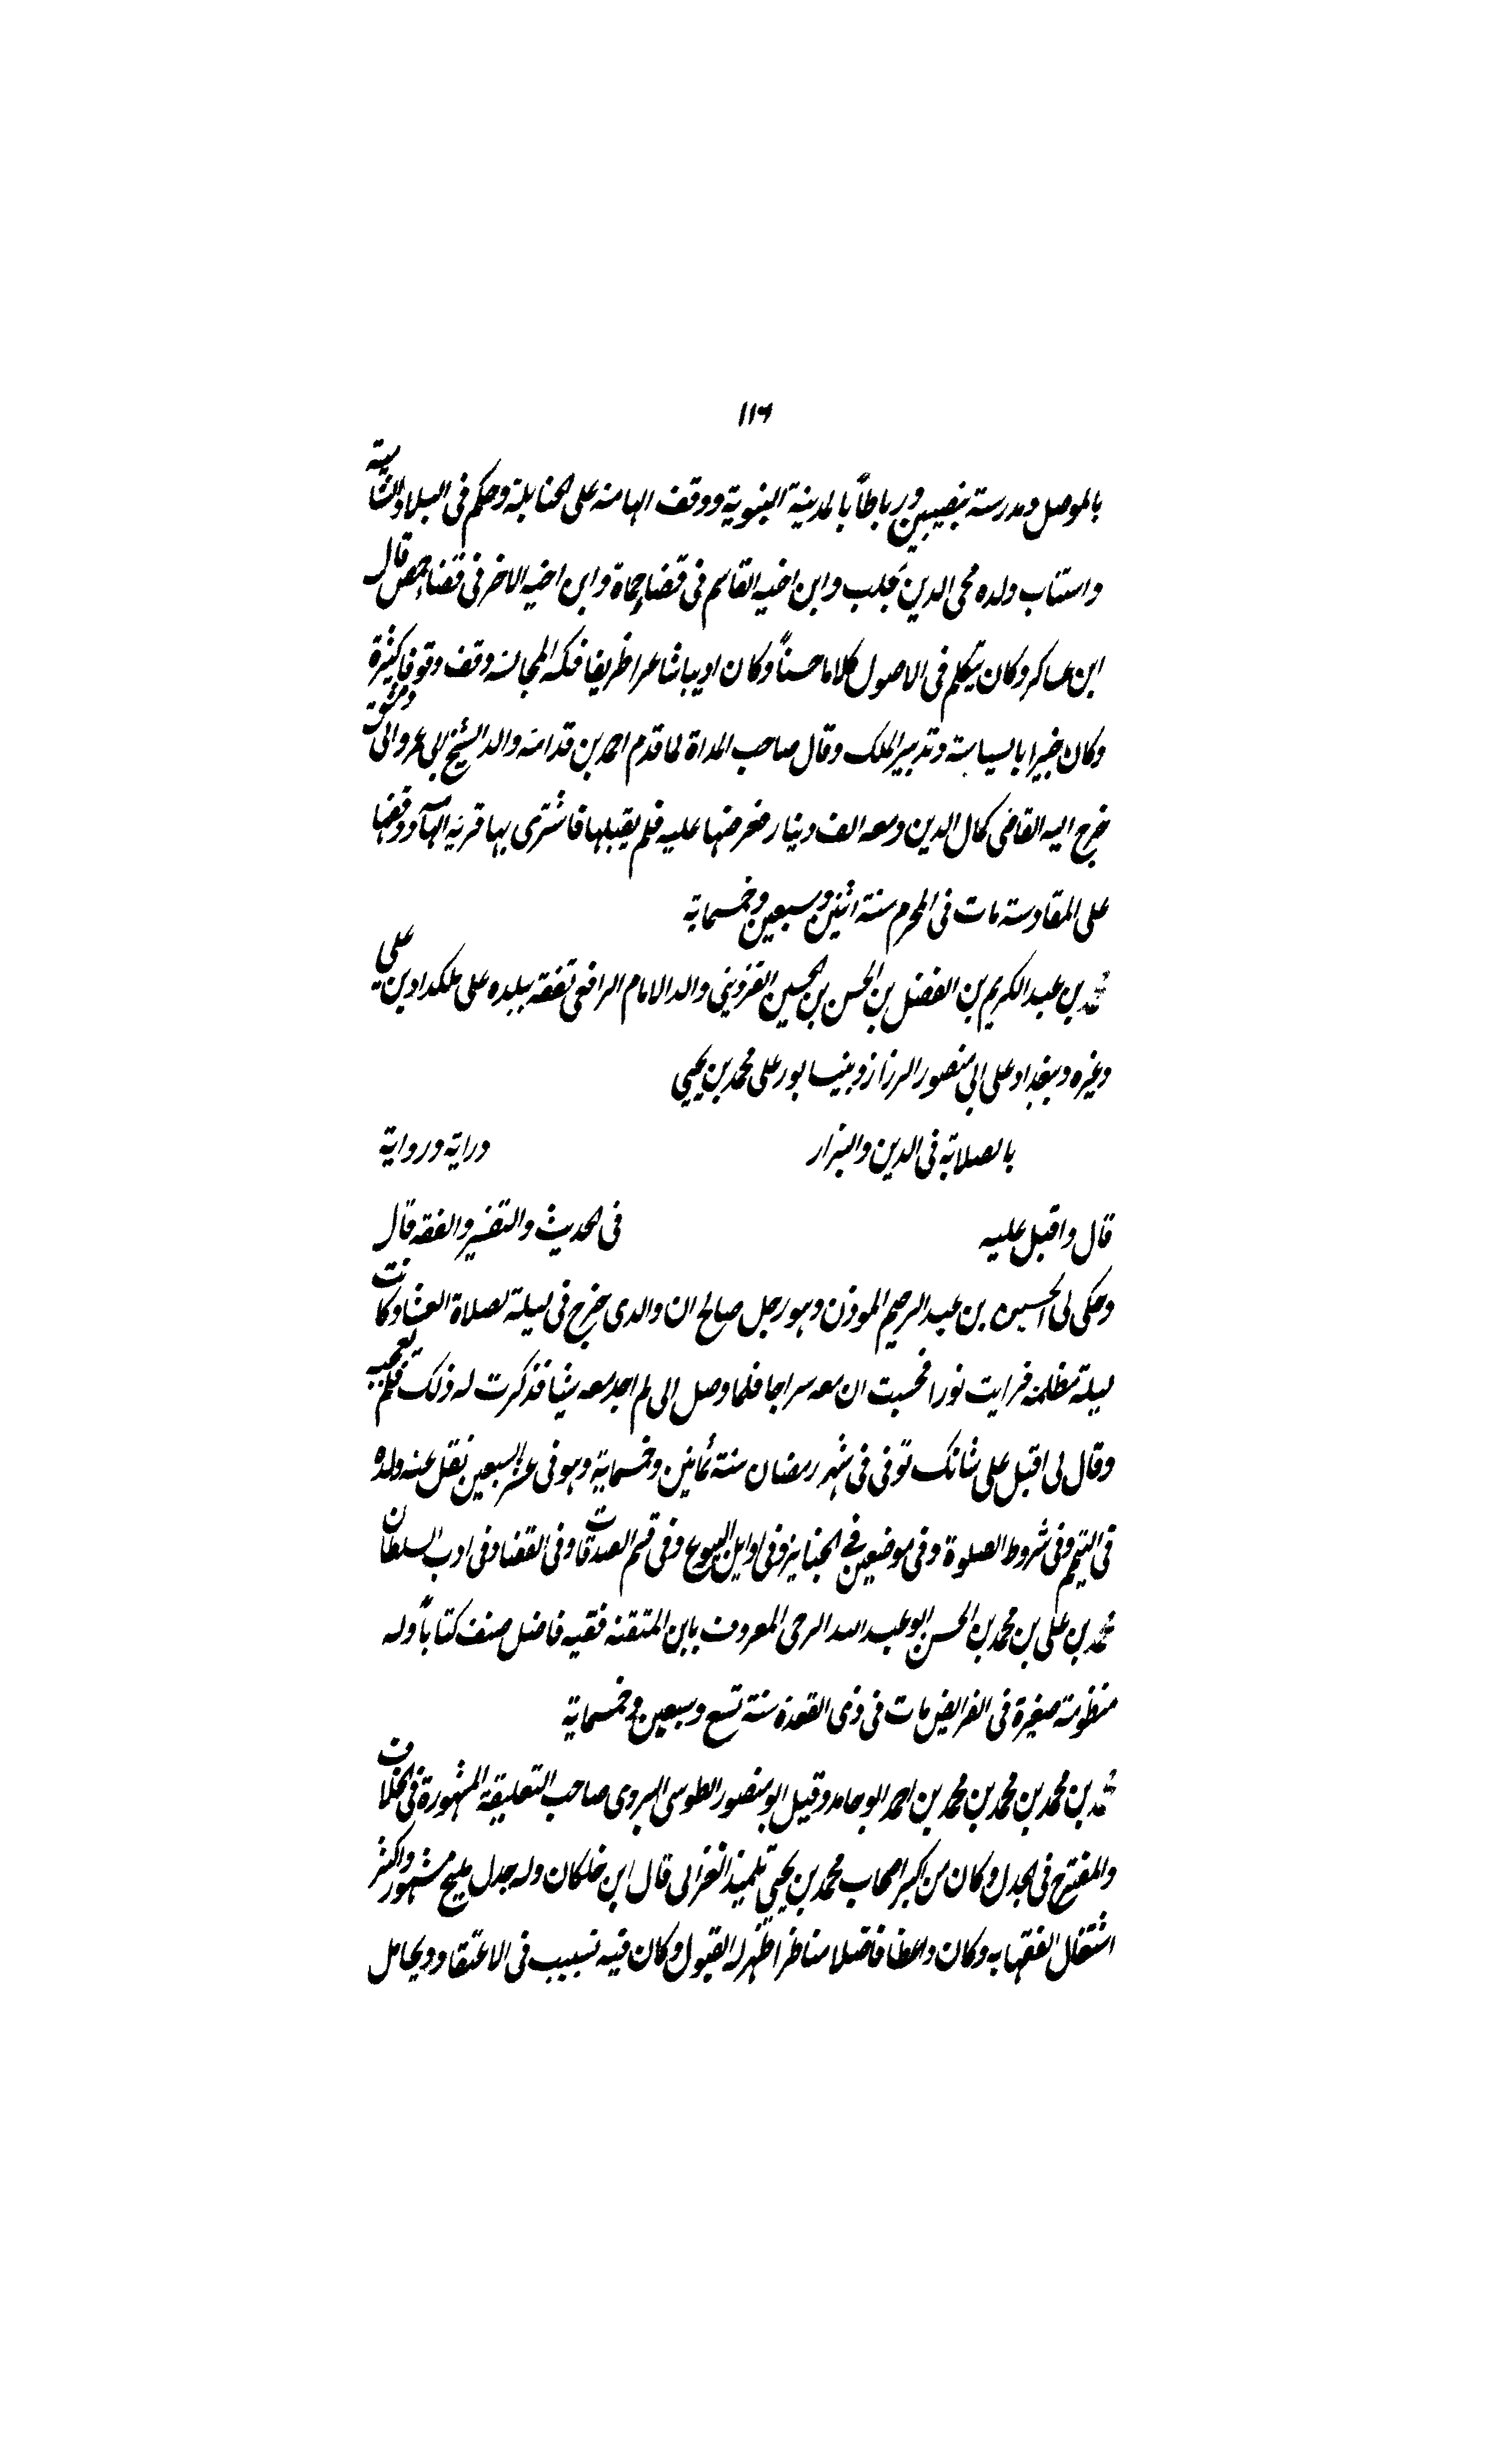 ١١٦
بالموصل ومدرسة بنصيبين ورباطاً بالمدينة النبوية ووقف الهامة على الحنابلة وحكم فى البلاد الشامية
واستناب ولده محى الدين بحلب وابن اخيه القاسم فى قضاء حماة وابن اخيه الاخر فى قضاء حمص قال
ابن عساكر وكان يتكلم فى الاصول كلاما حسناً وكان اديبا شاعرا ظريفا فكه المجالسة وقف وقوفا كثيرة
وكان خبيرا بالسياسة وتدبير الملك وقال صاحب المراة لما قدم احمد بن قدامة والد الشيخ ابى عمر والى دمشق
خرج اليه القاضى كمال الدين ومعه الف دينار فعرضها عليه فلم يقبلها فاشترى بها قرية الهامة ووقفها
على المقادسة مات فى المحرم سنة اثنين وسبعين وخمسماية
محمد بن عبد الكريم بن الفضل بن الحسن بن الحسين القزوينى والد الامام الرافعى تفقه ببلده على ملكداد بن على
وغيره وببغداد على ابى منصور الرزاز وبنيسابور على محمد بن يحيى
بالصلابة فى الدين والبزار دراية ورواية
قال واقبل عليه فى الحديث والتفسير والفقه قال
وحكى لى الحسين بن عبد الرحيم الموذن وهو رجل صالح ان والدى خرج فى ليلة لصلاة العشا وكانت
ليلة مظلمة فرايت نورا فحسبت ان معه سراجا فلما وصل الى لم اجد معه شيئا فذكرت له ذلك فلم يعجبه
وقال لى اقبل على شانك توفى فى شهر رمضان سنة ثمانين وخمسماية وهو فى عشر السبعين نقل عنه ولده
فى التيمم وفى شروط الصلوة وفى موضعين فى الجنايز وفى اوايل البيوع وفى قسم الصدقات وفى القضا وفى ادب السلطان
محمد بن على بن محمد بن الحسن ابو عبد الله الرحبى المعروف بابن المتقنة فقيه فاضل صنف كتاباً وله
منظومة صغيرة فى الفرايض مات فى ذى القعدة سنة تسع وسبعين وخمسماية
محمد بن محمد بن محمد بن محمد بن احمد ابو حامد وقيل ابو منصور الطوسى البروى صاحب التعليقة المشهورة فى الخلاف
والمقترح فى الجدل وكان من اكبر اصحاب محمد بن يحيى تلميذ الغزالى قال ابن خلكان وله جدل مليح مشهور واكثر
اشتغال الفقها به وكان واعظا فاضلا مناظرا ظهر له القبول وكان فيه تسبيب فى الاعتقاد ويحامل